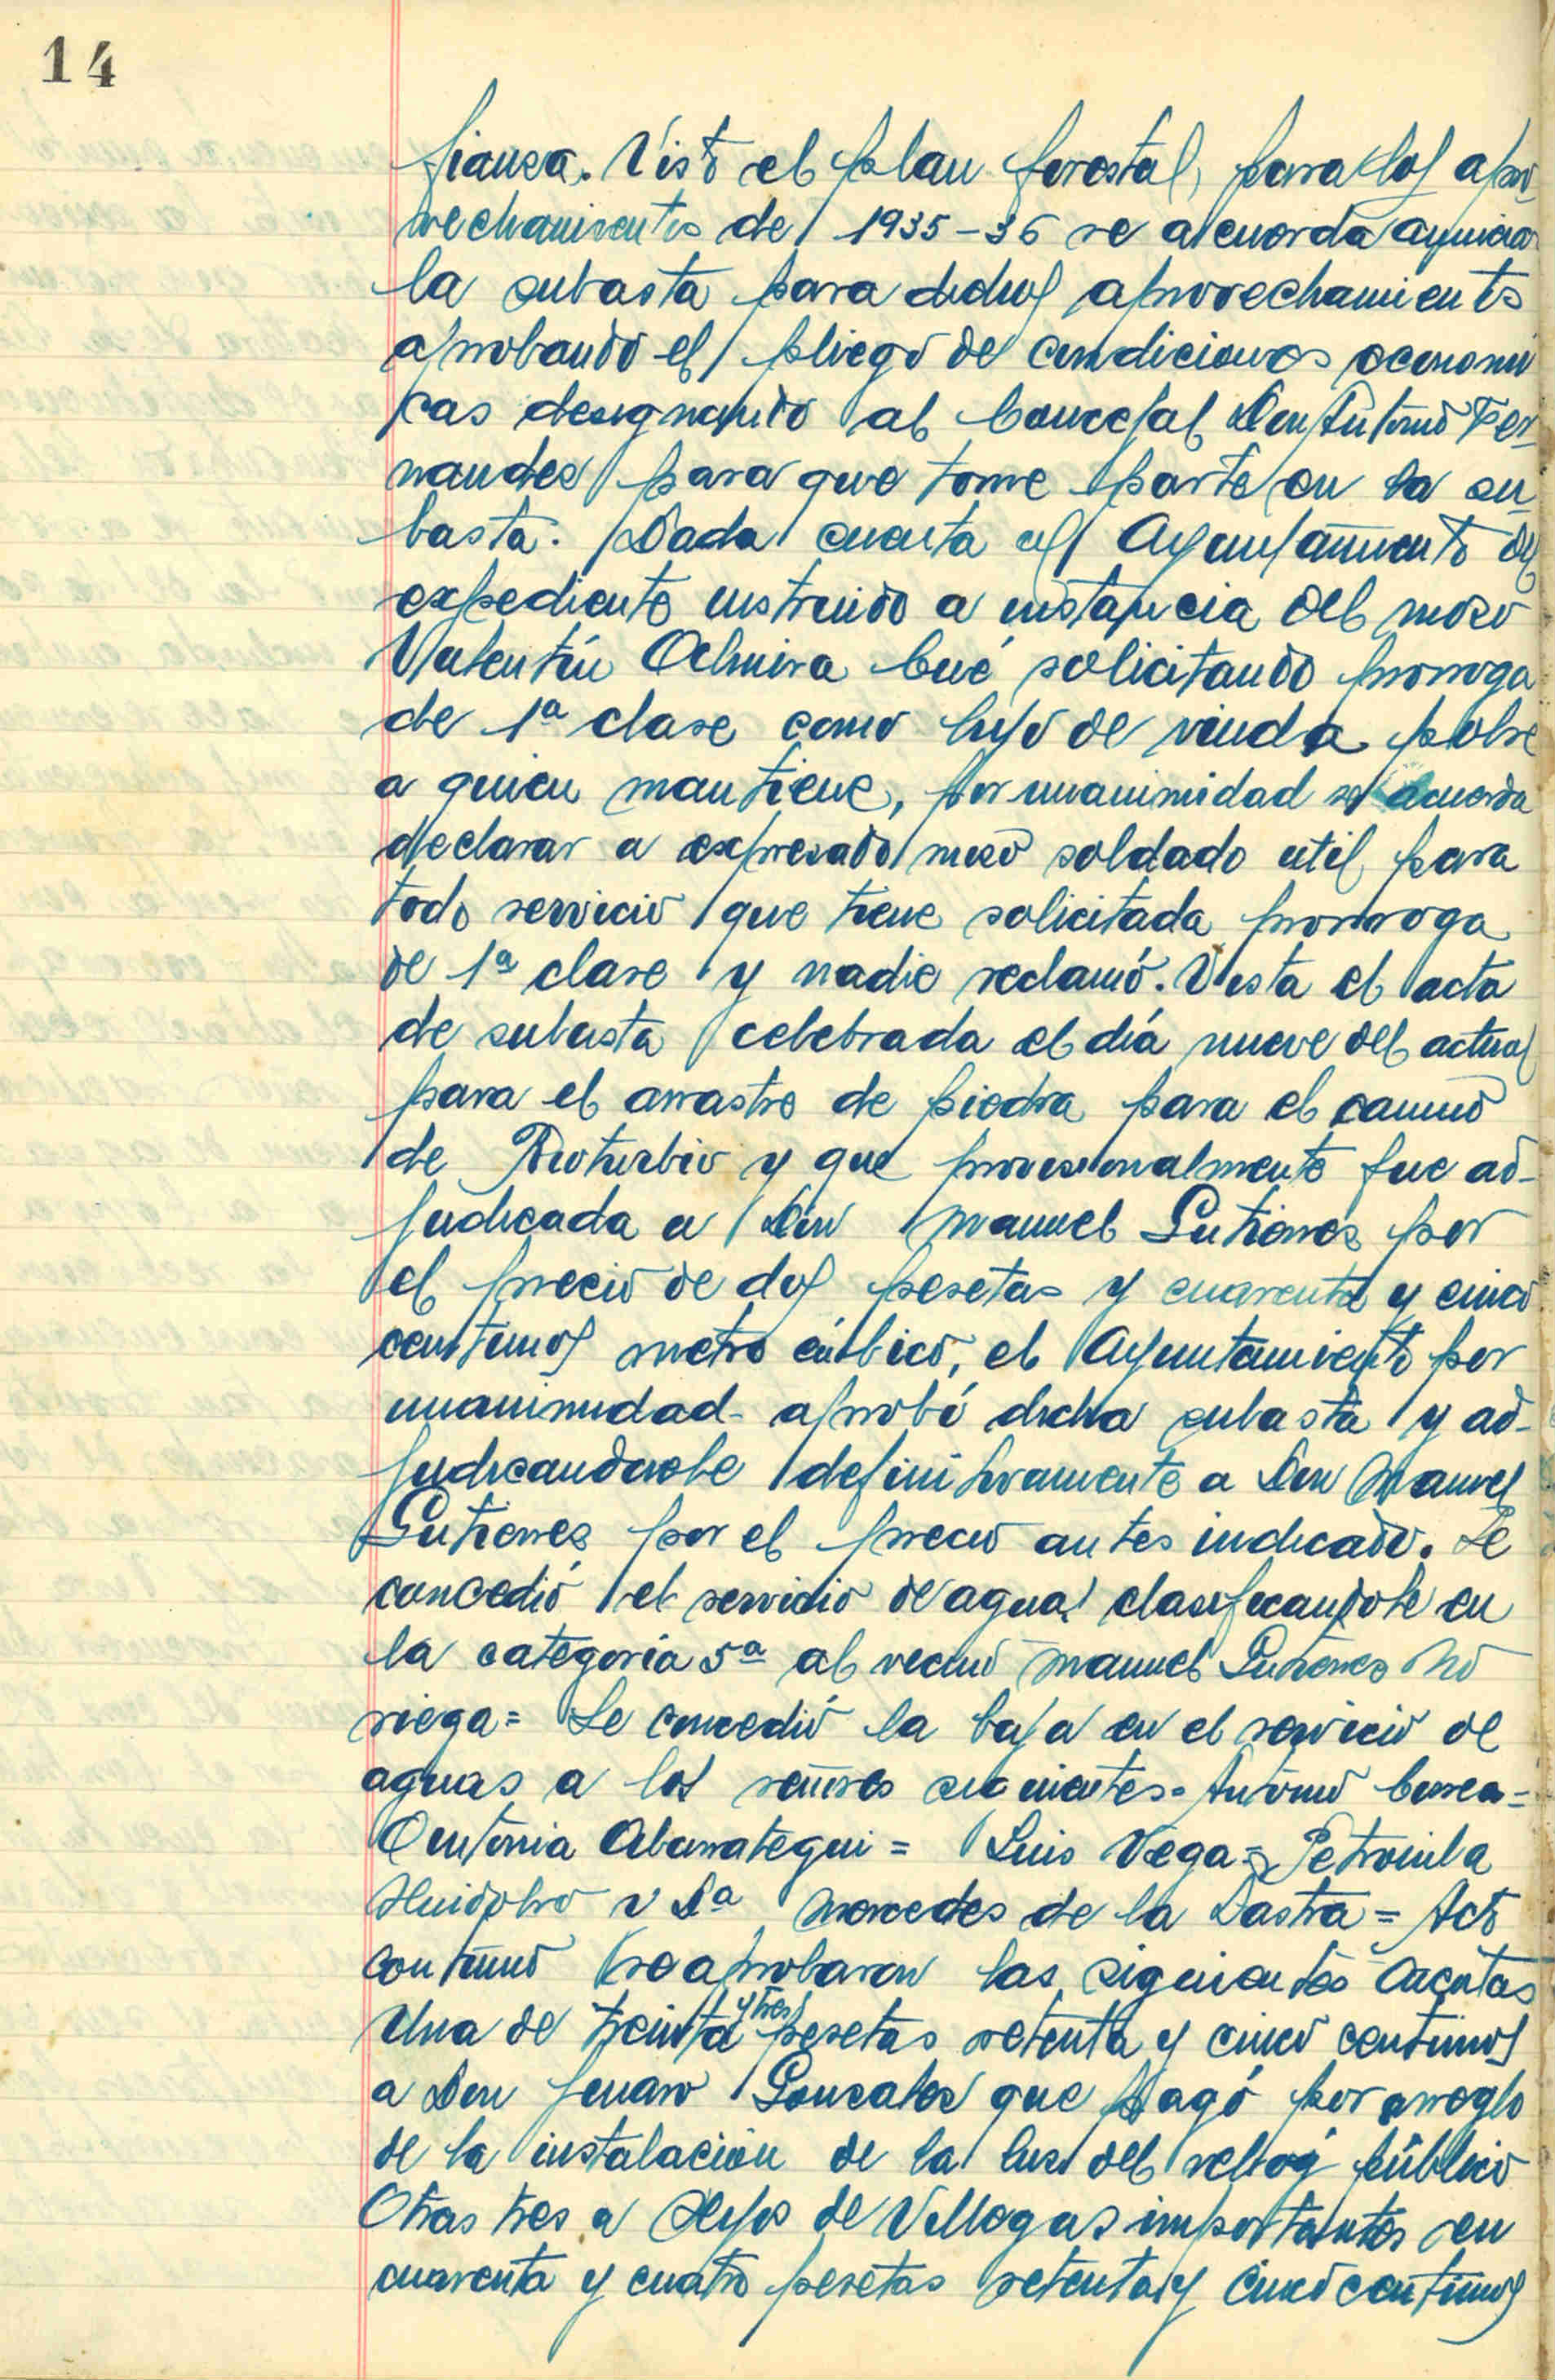 14
fianza. Visto el plan forestal, para los apro
vechamientos de 1935-36 se acuerda anunciar
la subasta para dichos aprovechamientos
aprobando el pliego de condiciones economi
cas designando al Concejal Don Antonio Fer
nandez para que tome parte en la su
basta. Dada cuenta al Ayuntamiento del
expediente instruido a instancia del mozo
Valentín Cué solicitando prorroga
de 1ª clase como hijo de viuda pobre
a quien mantiene, por unanimidad se acuerda
declarar a expresado mozo soldado util para
todo servicio que tiene solicitada prorroga
de 1ª clase y nadie reclamó. Vista el acta
de subasta celebrada el día nueve del actual
para el arrastre de piedra para el camino
de Rioturbio y que provisionalmente fue ad-
judicada a Don Manuel Gutierrez por
el precio de dos pesetas y cuarenta y cinco
centimos metro cúbico, el Ayuntamiento por
unanimidad aprobó dicha subasta y ad-
judicandosele definitivamente a Don Manuel
Gutierrez por el precio antes indicado. Se
concedió el servicio de agua clasificandole en
la categoria 5ª al vecino Manuel Gutierrez No
riega = Se concedió la baja en el servicio de
aguas a los señores siguientes. Antonio Correa =
Antonia Abarrategui = Luis Vega = Petronila
Huidobro y Dª Mercedes de la Lastra = Acto
continuo se aprobaron las siguientes cuentas
Una de treinta y tres pesetas setenta y cinco centimos
a Don Jenaro Gonzalez que pagó por arreglo
de la instalación de la luz del reloj público
Otras tres a Hijos de Villegas importantes en
cuarenta y cuatro pesetas setenta y cinco centimos